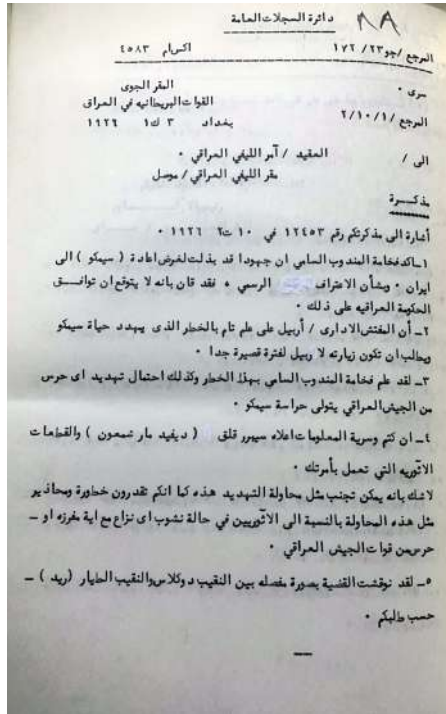 ٨٨
دائرة السجلات العامة
المرجع /جو٢٣/ ١٧٢ اكس/م ٤٥٨٣
سرى ٠
المقر الجوى
القوات البريطانيه في العراق
المرجع /٢/١٠/١ بغداد ٣ ك١ ١٩٢٦
الى / العقيد / آمر الليفي العراقي ٠
مقر الليفي العراقي / موصل
مذكــرة
أشارة الى مذكرتكم رقم ١٢٤٥٣ في ١٠ ت٢ ١٩٢٦ ٠
١ــ اكد فخامة المندوب السامي ان جهودا قد بذلت لغرض اعادة ( سيمكو ) الى
ايران ٠ وبشأن الاعتراف الرسمي ٠ فقد قان بانه لا يتوقع ان توافــق
الحكومة العراقيه على ذلك ٠
٢ــ أن المفتش الادارى / أربيل على علم تام بالخطر الذى يهدد حياة سيمكو
ويطلب ان تكون زيارته لا ربيل لفترة قصيرة جدا ٠
٣ــ لقد علم فخامة المندوب السامي بهذا الخطر وكذلك احتمال تهديد اى حرس
من الجيش العراقي يتولى حراسة سيمكو ٠
٤ــ ان كتم وسرية المعلومات اعلاه سيبرر قلق ( ديفيد مار شمعون ) والقطعات
الاثوريه التي تعمل بأمرتك ٠
لاشك بانه يمكن تجنب مثل محاولة التهديد هذه كما انكم تقدرون خطورة ومحاذير
مثل هذه المحاولة بالنسبة الى الاثوريين في حالة نشوب اى نزاع مع اية مفرزه او ــ
حرس من قوات الجيش العراقي ٠
٥ــ لقد نوقشت القضية بصورة مفصله بين النقيب دوكلاس والنقيب الطيار ( ريد ) ــ
حسب طلبكم ٠